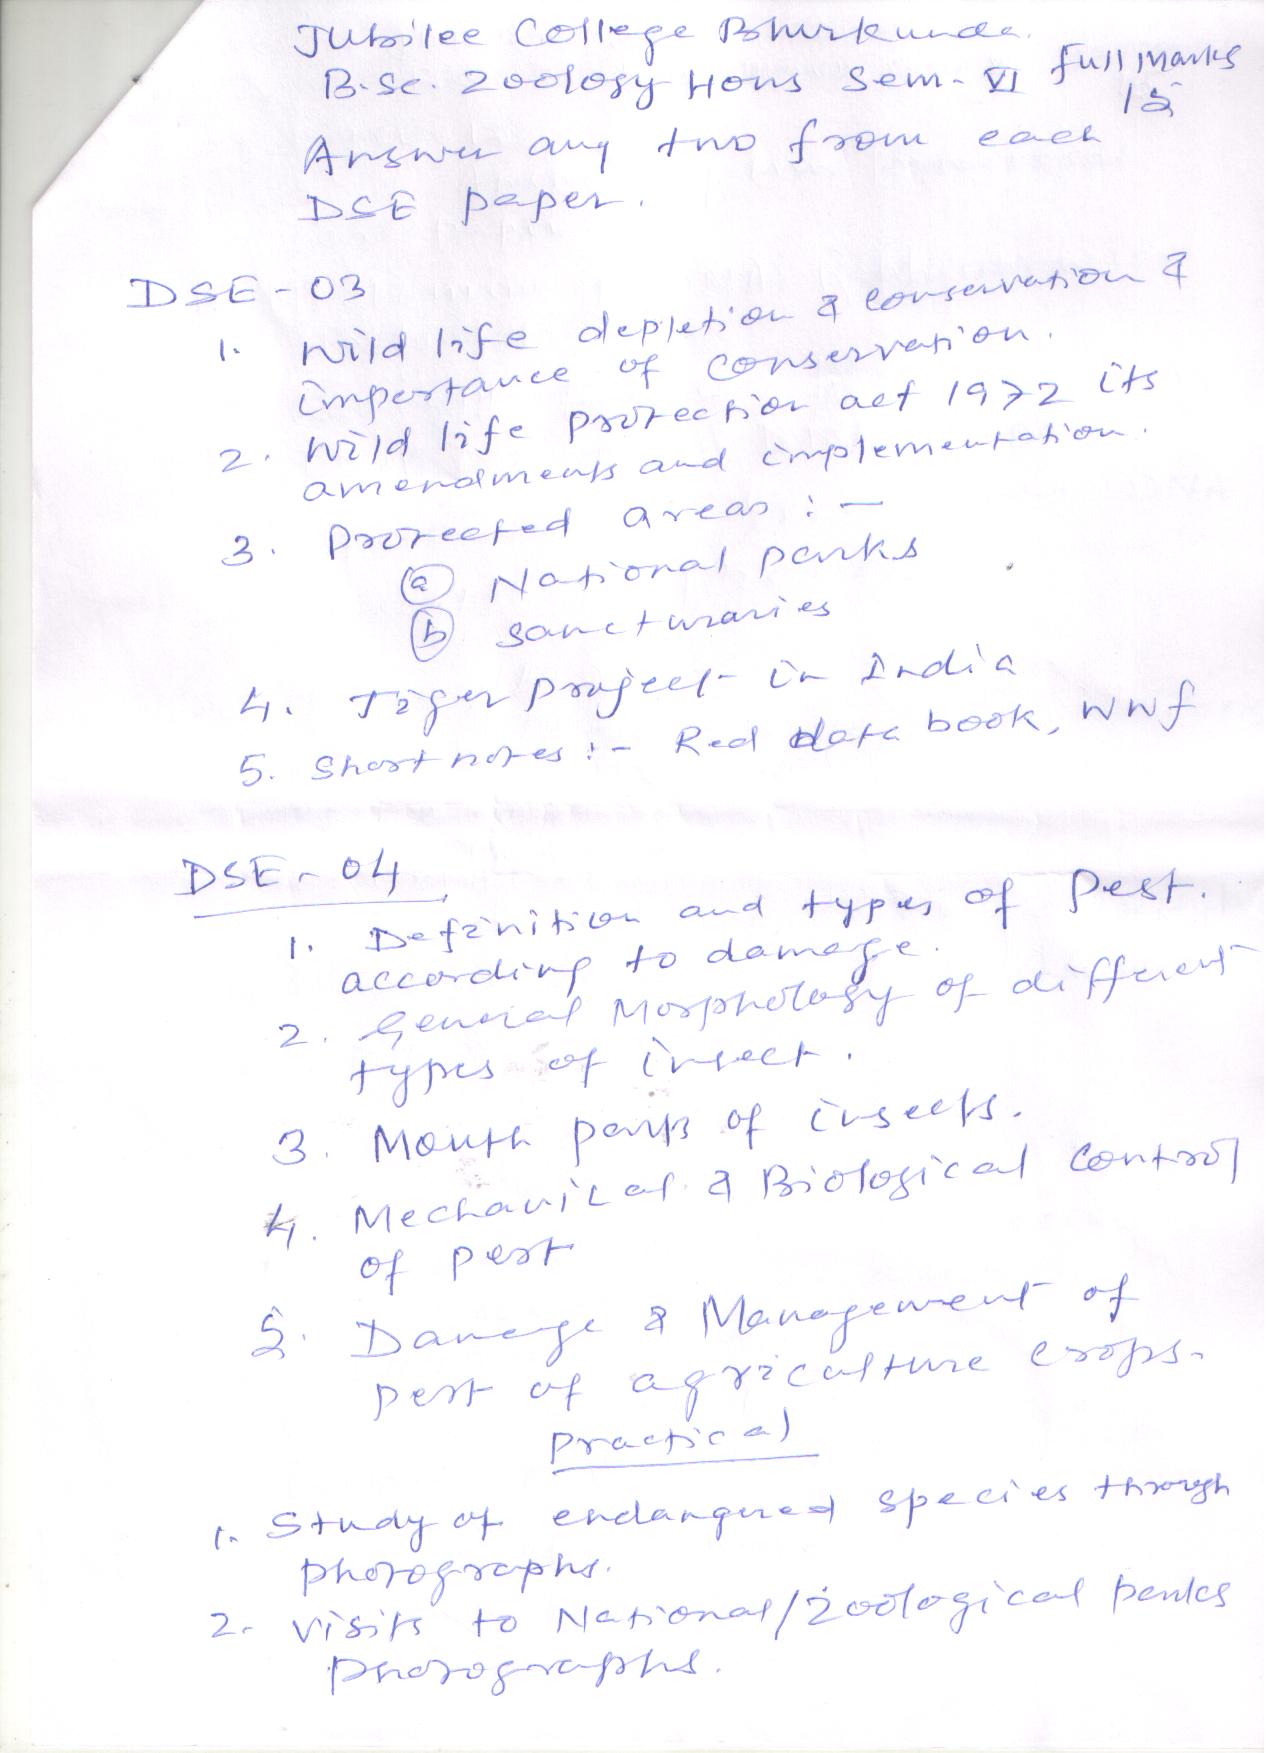 Jubilee College Bhurkunda.
B.Sc. Zoology Hons Sem-VI Full Marks
15
Answer any two from each
DSE paper.
DSE-03
1. Wild life depletion & conservation &
importance of conservation.
2. Wild life protection act 1972 its
amendments and implementation.
3. Protected areas :-
(a) National parks
(b) Sancturaries
4. Tiger project in India
5. Short notes :- Red data book, WWF
DSE-04
1. Definition and types of Pest.
according to damage.
2. General Morphology of different
types of insect.
3. Mouth parts of insects.
4. Mechanical & Biological Control
of pest
5. Damage & Management of
pest of agriculture crops.
Practical
1. Study of endangered species through
photographs.
2. Visits to National/Zoological parks
Photographs.